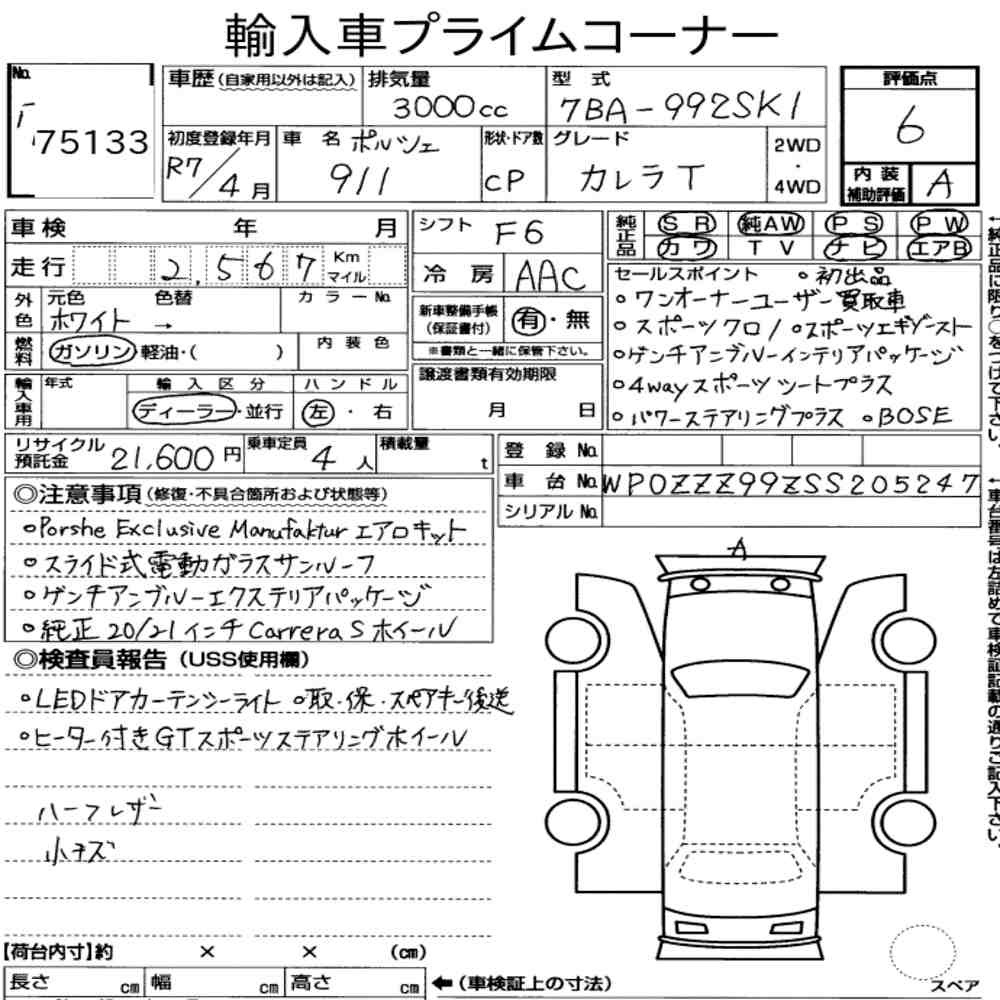 輸入車プライムコーナー
No. 75133
車歴(自家用以外は記入)
排気量 3000cc
型式 7BA-992SK1
評価点 6
初度登録年月 R7/4月
車名 ポルシェ 911
形状・ドア数 CP
グレード カレラT
2WD・4WD
内装補助評価 A
車検 年 月
シフト F6
純正品 SR 純AW PS PW
カワ TV ナビ エアB
走行 2,567 Km マイル
冷房 AAC
セールスポイント ○初出品
○ワンオーナーユーザー買取車
外色 元色 ホワイト 色替 → カラーNo.
新車整備手帳(保証書付) 有・無
※書類と一緒に保管下さい。
○スポーツクロノ ○スポーツエギゾースト
燃料 ガソリン・軽油・( ) 内装色
○ゲンチアンブルーインテリアパッケージ
輸入車用 年式 輸入区分 ディーラー・並行 ハンドル 左・右
譲渡書類有効期限 月 日
○4wayスポーツシートプラス
○パワーステアリングプラス ○BOSE
リサイクル預託金 21,600円 乗車定員 4人 積載量 t
登録No.
車台No. WP0ZZZ99ZSS205247
シリアルNo.
◎注意事項(修復・不具合箇所および状態等)
○Porshe Exclusive Manufaktur エアロキット
○スライド式電動ガラスサンルーフ
○ゲンチアンブルーエクステリアパッケージ
○純正20/21インチCarreraSホイール
◎検査員報告(USS使用欄)
○LEDドアカーテシーライト ○取・保・スペアキー後送
○ヒーター付きGTスポーツステアリングホイール
ハーフレザー
小キズ
A
【荷台内寸】約 × × (cm)
長さ cm 幅 cm 高さ cm
←(車検証上の寸法)
スペア
←純正品に限り○をつけて下さい。
←車台番号は左詰めで車検証記載の通りご記入下さい。